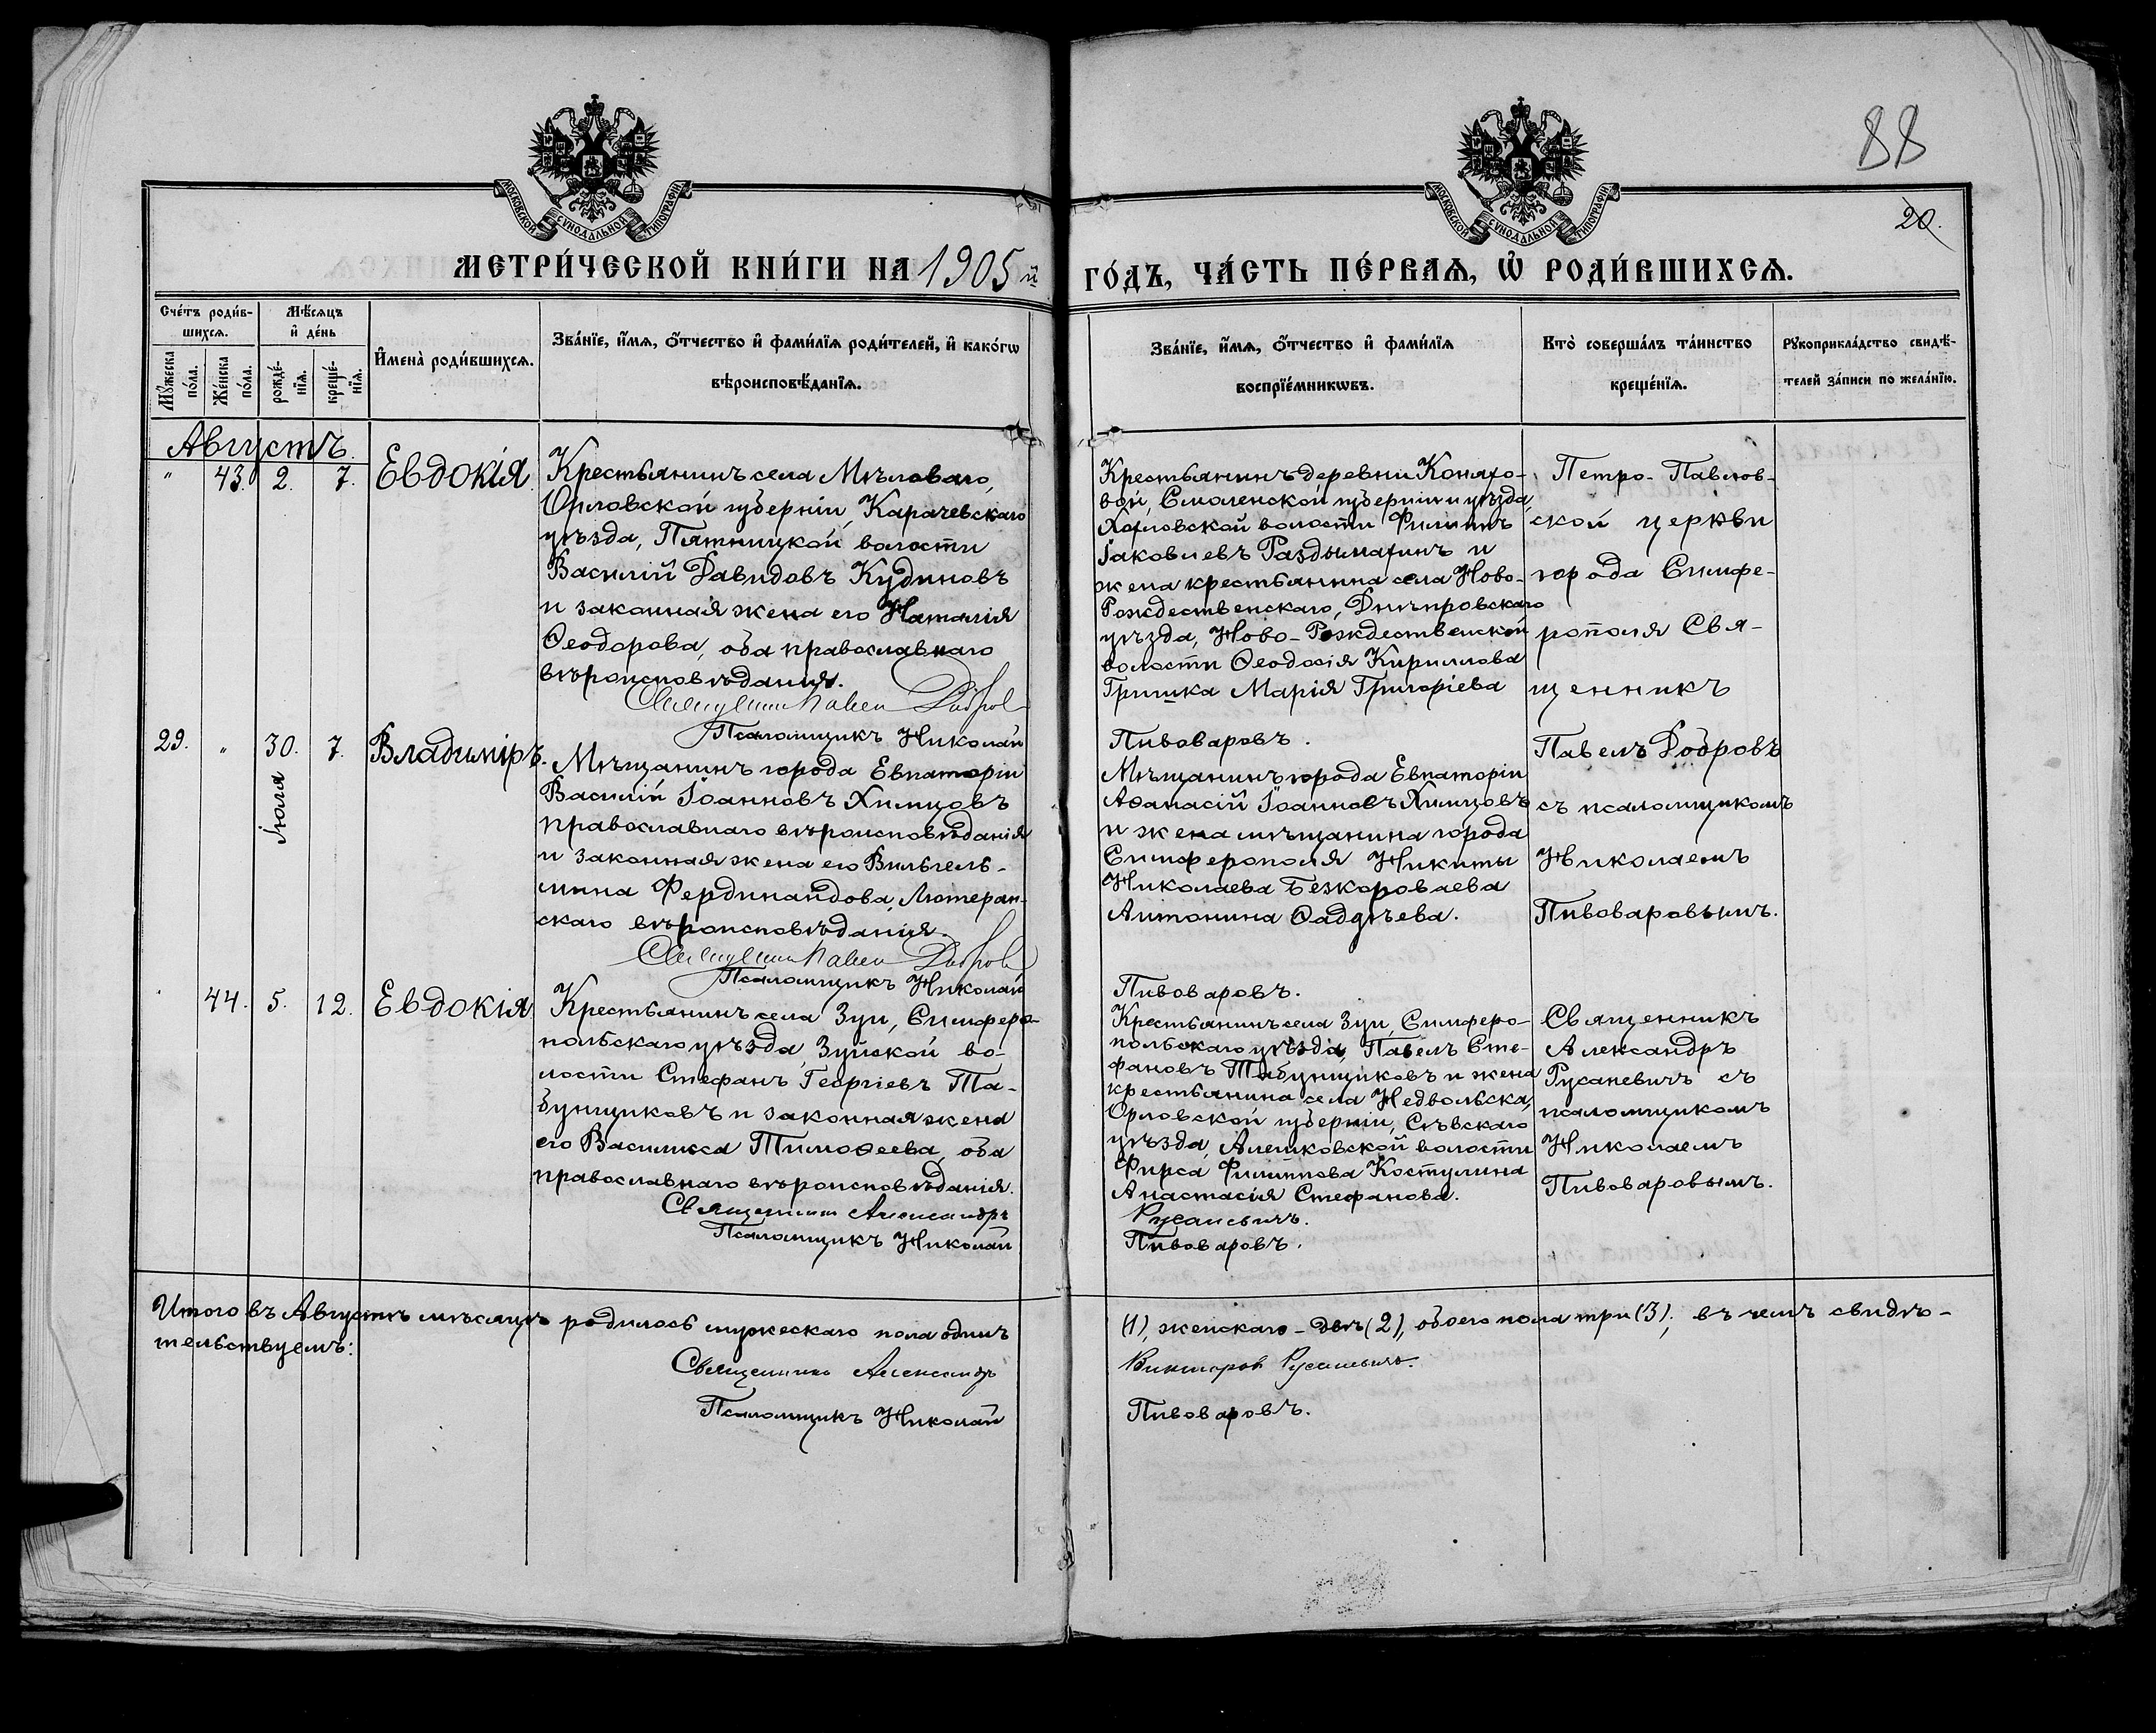 88
20.
МОСКОВСКОЙ СѴНОДАЛЬНОЙ ТИПОГРАФІИ
МОСКОВСКОЙ СѴНОДАЛЬНОЙ ТИПОГРАФІИ
МЕТРИ́ЧЕСКОЙ КНИ́ГИ НА 1905 й
ГО́ДЪ, ЧА́СТЬ ПЕ́РВАѦ, Ѡ҆ РОДИ́ВШИХСѦ.
Сче́тъ роди́в-
шихсѧ.
Мꙋжеска по́ла.
Же́нска по́ла.
Мѣ́сѧцъ
и҆ де́нь
рожде́-
нїѧ.
креще́-
нїѧ.
И҆мена̀ роди́вшихсѧ.
Зва́нїе, и҆́мѧ, ѻ҆́тчество и҆ фами́лїѧ роди́телей, и҆ како́гѡ
вѣроисповѣ́данїѧ.
Зва́нїе, и҆́мѧ, ѻ҆́тчество и҆ фами́лїѧ
воспрїе́мникѡвъ.
Кто̀ соверша́лъ та́инство
креще́нїѧ.
Рꙋкоприкла́дство свидѣ́-
телей за́писи по жела́нїю.
Августъ.
" 43. 2. 7. Евдокія
Крестьянинъ села Мѣловаго,
Орловской губерніи, Карачевскаго
уѣзда, Пятницкой волости
Василій Давидовъ Кудиновъ
и законная жена его Наталія
Ѳеодорова, оба православнаго
вѣроисповѣданія.
Священникъ Павелъ Добров
Псаломщикъ Николай
Крестьянинъ деревни Коняхо-
вой, Смоленской губерніи и уѣзда,
Хохловской волости Филиппъ
Іаковлевъ Раздымахинъ и
жена крестьянина села Ново-
Рождественскаго, Днѣпровскаго
уѣзда, Ново-Рождественской
волости Ѳеодосія Кириллова
Гришка Марія Григоріева
Пивоваровъ.
Петро-Павлов-
ской церкви
города Симфе-
рополя Свя-
щенникъ
Павелъ Добровъ
съ псаломщикомъ
Николаемъ
Пивоваровымъ.
29. " 30. 7. Владиміръ.
Іюля
Мѣщанинъ города Евпаторіи
Василій Іоанновъ Химцовъ
православнаго вѣроисповѣданія
и законная жена его Вильгель-
мина Фердинандова, Лютеран-
скаго вѣроисповѣданія.
Священникъ Павелъ Добров
Псаломщикъ Николай
Мѣщанинъ города Евпаторіи
Аѳанасій Іоанновъ Химцовъ
и жена мѣщанина города
Симферополя Никиты
Николаева Безкороваева
Антонина Ѳаддѣева.
Пивоваровъ.
44. 5. 12. Евдокія
Крестьянинъ села Зуи, Симферо-
польскаго уѣзда, Зуйской во-
лости Стефанъ Георгіевъ Та-
бунщиковъ и законная жена
его Василисса Тимоѳеева, оба
православнаго вѣроисповѣданія.
Священникъ Александръ
Псаломщикъ Николай
Крестьянинъ села Зуи, Симферо-
польскаго уѣзда, Павелъ Сте-
фановъ Табунщиковъ и жена
крестьянина села Недвольска,
Орловской губерніи, Сѣвскаго
уѣзда, Алешковской волости
Фирса Филиппова Костулина
Анастасія Стефанова.
Русаневичъ.
Пивоваровъ.
Священникъ
Александръ
Русаневичъ съ
псаломщикомъ
Николаемъ
Пивоваровымъ.
Итого въ Августѣ мѣсяцѣ родилось мужескаго пола одинъ
(1), женскаго - двѣ (2), обоего пола три (3); въ чемъ свидѣ-
тельствуемъ:
Священникъ Александръ
Викторовъ Русаневичъ.
Псаломщикъ Николай
Пивоваровъ.